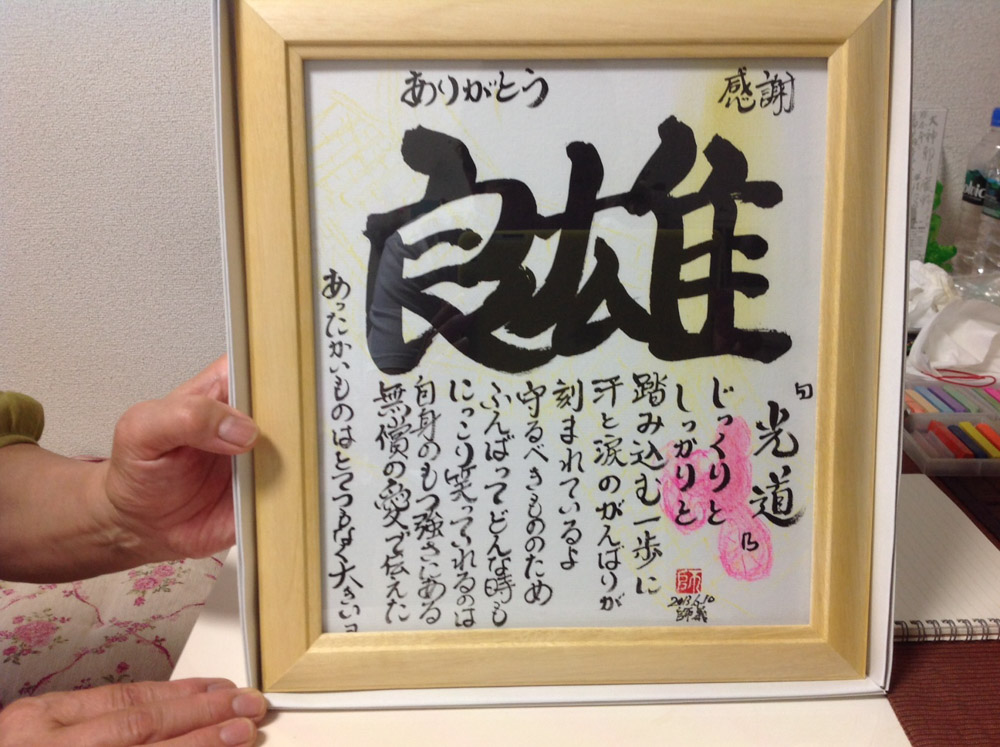 感謝
ありがとう
良雄
光道
じっくりと
しっかりと
踏み込む一歩に
汗と涙のがんばりが
刻まれているよ
守るべきもののため
ふんばってどんな時も
にっこり笑っていれるのは
自身のもつ強さにある
無償の愛で伝えた
あったかいものはとてつもなく大きいヨ
師
2013.6.10